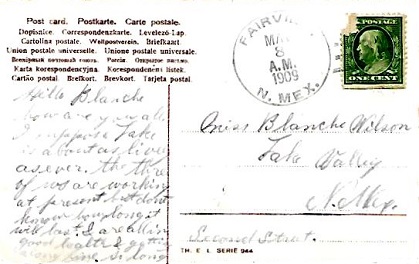 Post card. Postkarte. Carte postale.
Dopisnice. Correspondenzkarte. Levelező-Lap.
Cartolina postale. Weltpostverein. Briefkaart
Union postale universelle. Unione postale universale.
Всемірный почтовый союзъ. Россія. Открытое письмо.
Karta korespondencyjna. Korespondenční lístek.
Cartão postal. Brefkort. Brevkort. Tarjeta postal.
FAIRVIEW
8
A.M.
1909
N. MEX.
POSTAGE
ONE CENT
Hello Blanche
how are you all
I suppose Lake
is about as live
as ever. the three
of us are working
at present but dont
know how long it
will last. are all in
good health & getting
along fine. so long
Miss Blanche Wilson
Lake Valley
N. Mex.
Second Street.
TH. E. L. SERIE 944